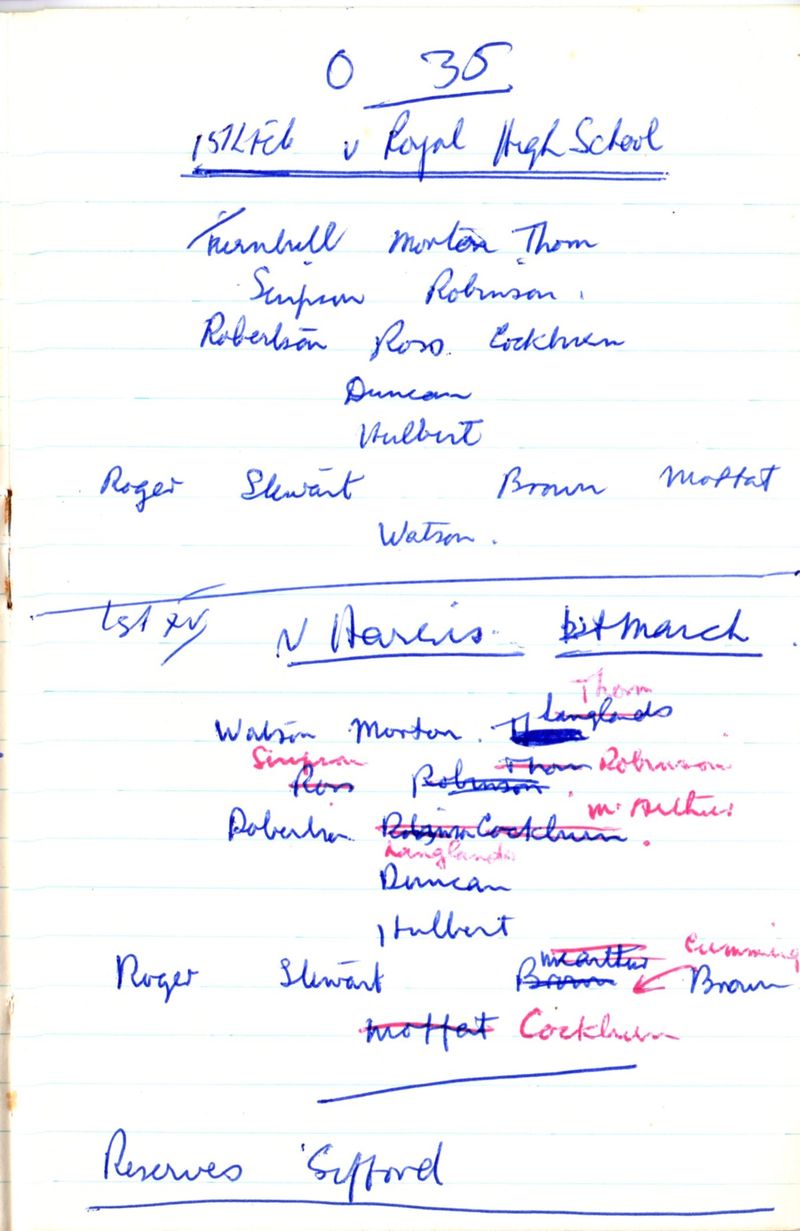 0 35
15th Feb v Royal High School
Turnbull Morton Thom
Simpson Robinson.
Robertson Ross. Cockburn
Duncan
Hulbert
Roger Stewart Brown Moffat
Watson.
1st XV v Harris 1st March
Thom
Watson Morton. Langlands
Simpson Thom Robinson
Ross Robinson
McArthur
Robertson Cockburn.
Langlands
Duncan
Hulbert
McArthur Cumming
Roger Stewart Brown Brown
Moffat Cockburn
Reserves Gifford